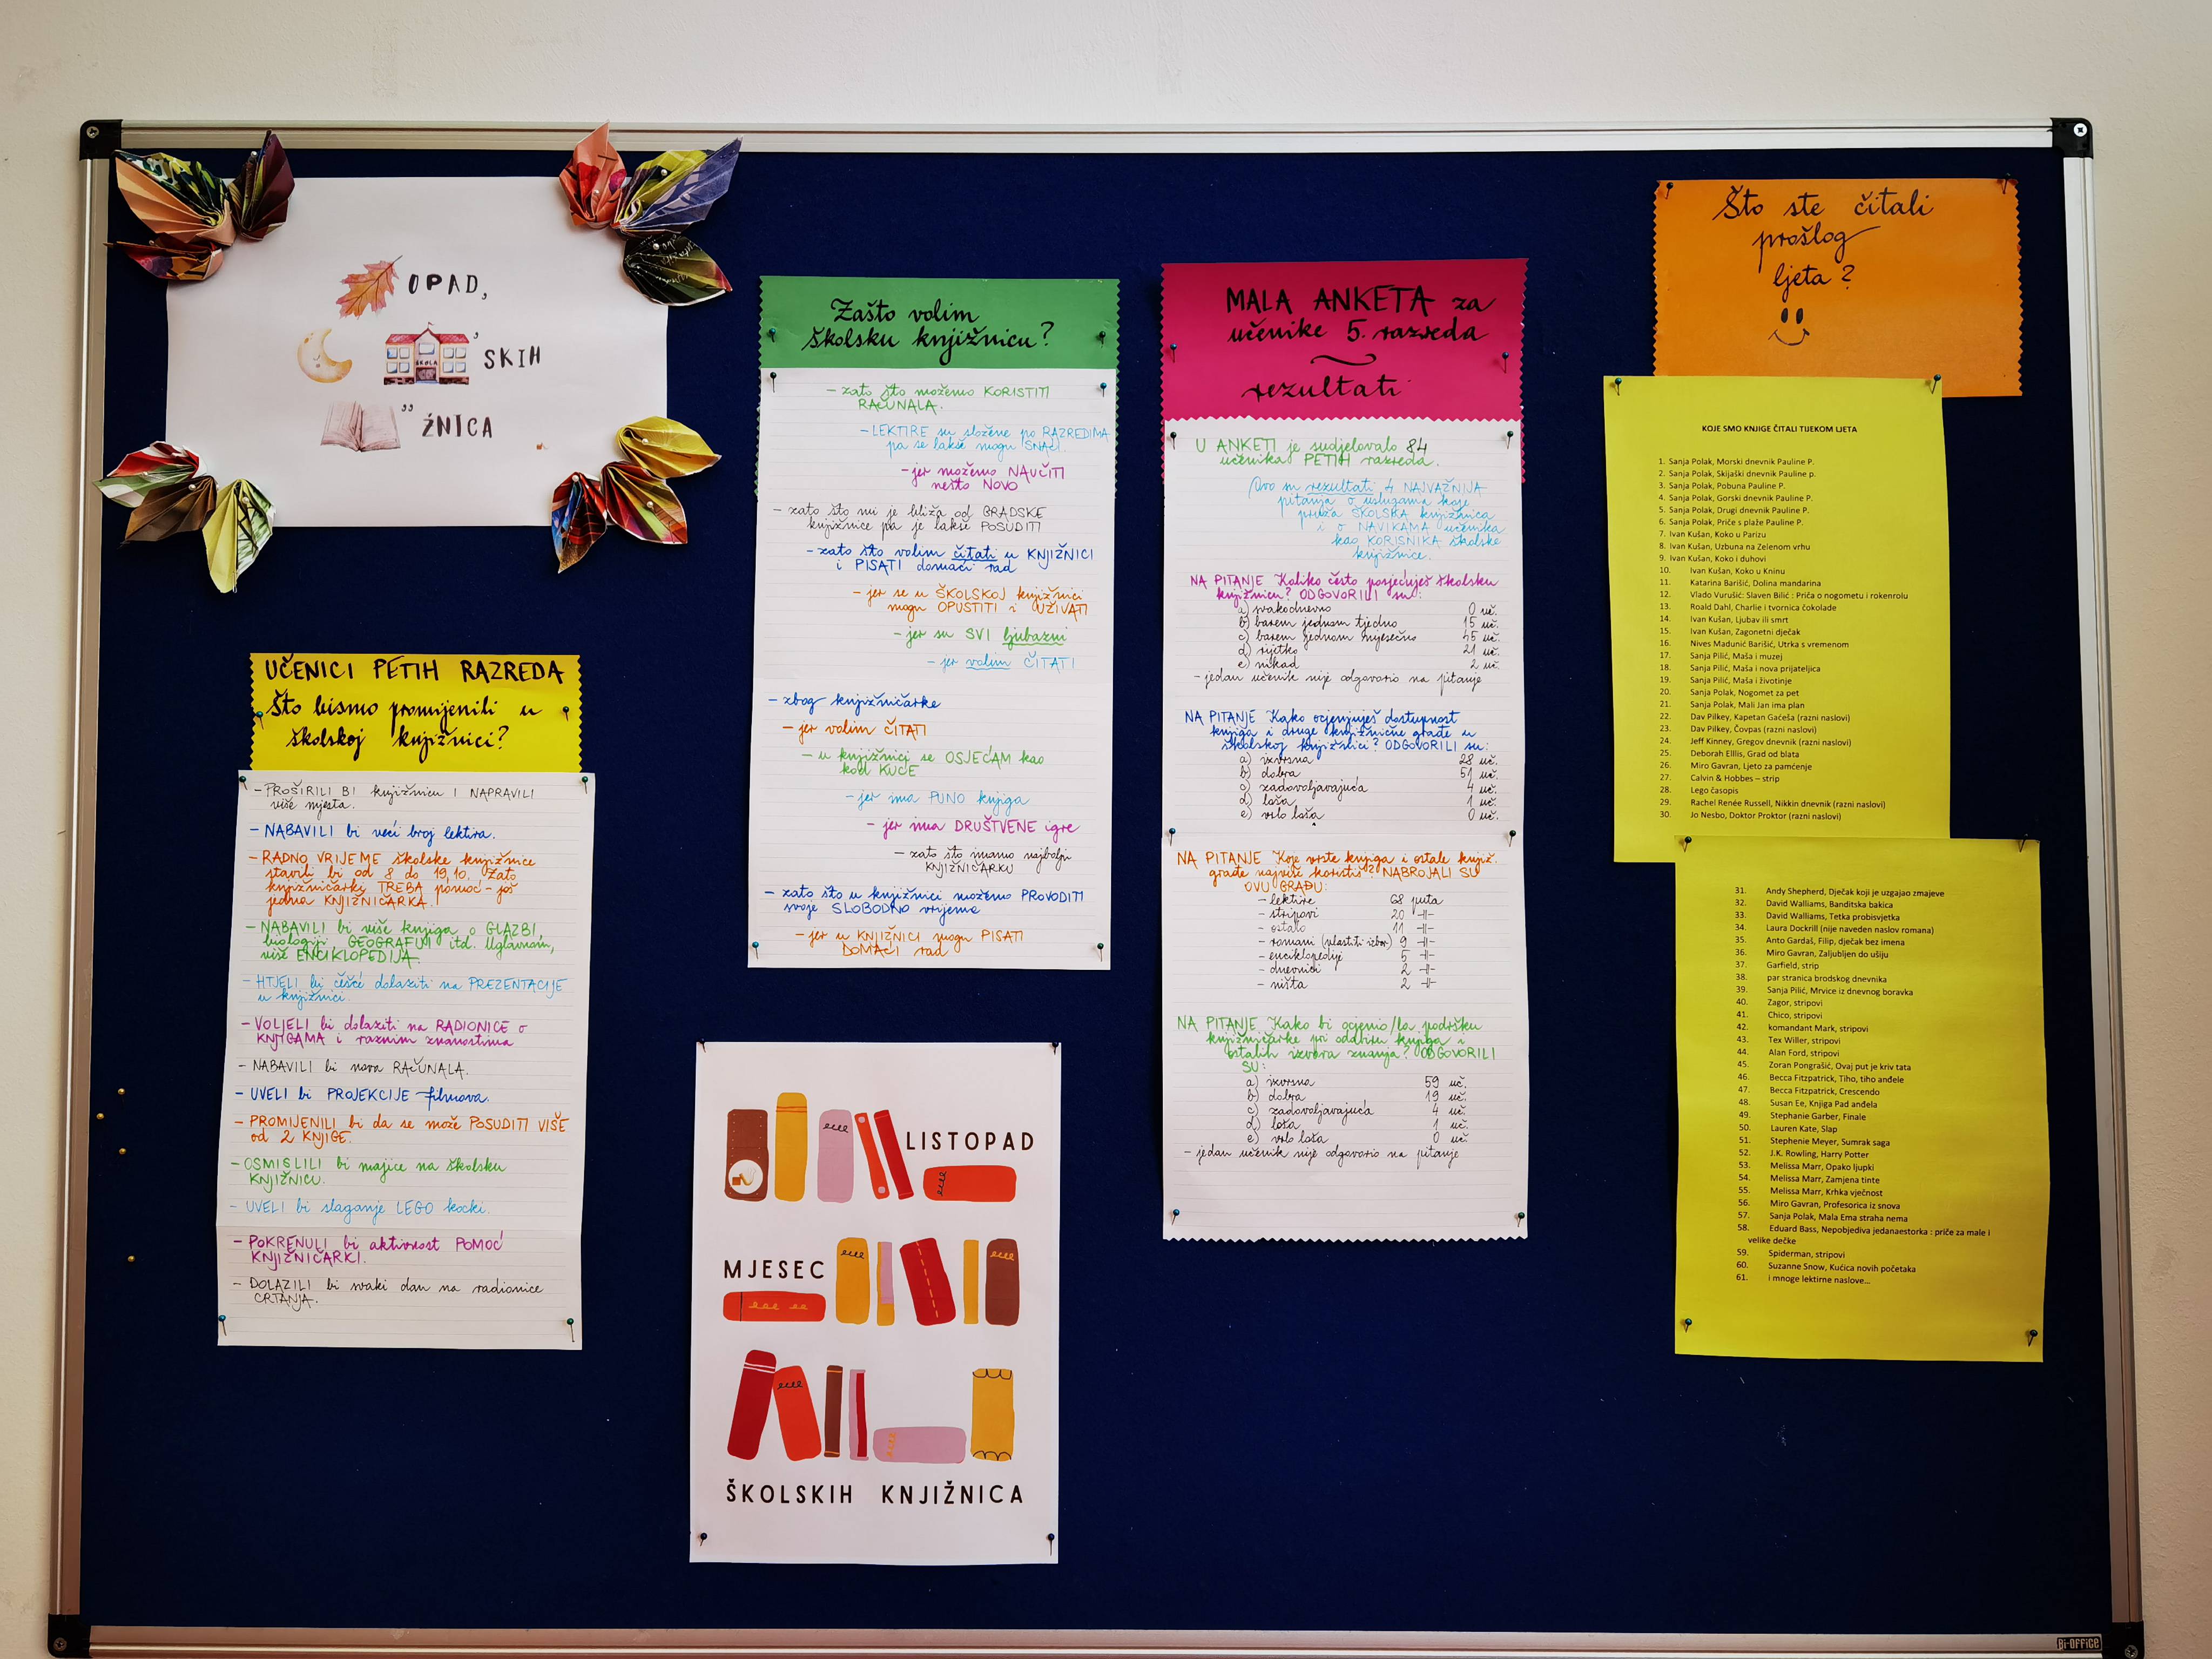 OPAD,
ŠKOLA ' SKIH
,, ŽNICA
UČENICI PETIH RAZREDA
Što bismo promijenili u
školskoj knjižnici?
- PROŠIRILI BI knjižnicu I NAPRAVILI
više mjesta.
- NABAVILI bi veći broj lektira.
- RADNO VRIJEME školske knjižnice
stavili bi od 8 do 19,10. Zato
knjižničarki TREBA pomoć - još
jedna KNJIŽNIČARKA.
- NABAVILI bi više knjiga o GLAZBI,
biologiji, GEOGRAFIJI itd. Uglavnom,
više ENCIKLOPEDIJA.
- HTJELI bi češće dolaziti na PREZENTACIJE
u knjižnici.
- VOLJELI bi dolaziti na RADIONICE o
KNJIGAMA i raznim znanostima
- NABAVILI bi nova RAČUNALA.
- UVELI bi PROJEKCIJE filmova.
- PROMIJENILI bi da se može POSUDITI VIŠE
od 2 KNJIGE.
- OSMISLILI bi majice na školsku
KNJIŽNICU.
- UVELI bi slaganje LEGO kocki.
- POKRENULI bi aktivnost POMOĆ
KNJIŽNIČARKI.
- DOLAZILI bi svaki dan na radionice
CRTANJA.
Zašto volim
školsku knjižnicu?
- zato što možemo KORISTITI
RAČUNALA.
- LEKTIRE su složene po RAZREDIMA
pa se lakše mogu SNAĆI.
- jer možemo NAUČITI
nešto NOVO
- zato što mi je bliža od GRADSKE
knjižnice pa je lakše POSUDITI
- zato što volim čitati u KNJIŽNICI
i PISATI domaći rad
- jer se u ŠKOLSKOJ knjižnici
mogu OPUSTITI i UŽIVATI
- jer su SVI ljubazni
- jer volim ČITATI
- zbog knjižničarke
- jer volim ČITATI
- u knjižnici se OSJEĆAM kao
kod KUĆE
- jer ima PUNO knjiga
- jer ima DRUŠTVENE igre
- zato što imamo najbolju
KNJIŽNIČARKU
- zato što u knjižnici možemo PROVODITI
svoje SLOBODNO vrijeme
- jer u KNJIŽNICI mogu PISATI
DOMAĆI rad
LISTOPAD
MJESEC
ŠKOLSKIH KNJIŽNICA
MALA ANKETA za
učenike 5. razreda
rezultati
U ANKETI je sudjelovalo 84
učenika PETIH razreda.
Ovo su rezultati 4 NAJVAŽNIJA
pitanja o uslugama koje
pruža ŠKOLSKA knjižnica
i o NAVIKAMA učenika
kao KORISNIKA školske
knjižnice.
NA PITANJE Koliko često posjećuješ školsku
knjižnicu? ODGOVORILI su:
a) svakodnevno 0 uč.
b) barem jednom tjedno 15 uč.
c) barem jednom mjesečno 45 uč.
d) rijetko 21 uč.
e) nikad 2 uč.
- jedan učenik nije odgovorio na pitanje
NA PITANJE Kako ocjenjuješ dostupnost
knjiga i druge knjižnične građe u
školskoj knjižnici? ODGOVORILI su:
a) izvrsna 28 uč.
b) dobra 51 uč.
c) zadovoljavajuća 4 uč.
d) loša 1 uč.
e) vrlo loša 0 uč.
NA PITANJE Koje vrste knjiga i ostale knjiž.
građe najviše koristiš? NABROJALI SU
OVU GRAĐU:
- lektire 68 puta
- stripovi 20 -||-
- ostalo 11 -||-
- romani (vlastiti izbor) 9 -||-
- enciklopedije 5 -||-
- dnevnici 2 -||-
- ništa 2 -||-
NA PITANJE Kako bi ocjenio/la podršku
knjižničarke pri odabiru knjiga i
ostalih izvora znanja? ODGOVORILI
SU:
a) izvrsna 59 uč.
b) dobra 19 uč.
c) zadovoljavajuća 4 uč.
d) loša 1 uč.
e) vrlo loša 0 uč.
- jedan učenik nije odgovorio na pitanje
Što ste čitali
prošlog
ljeta?
KOJE SMO KNJIGE ČITALI TIJEKOM LJETA
1. Sanja Polak, Morski dnevnik Pauline P.
2. Sanja Polak, Skijaški dnevnik Pauline p.
3. Sanja Polak, Pobuna Pauline P.
4. Sanja Polak, Gorski dnevnik Pauline P.
5. Sanja Polak, Drugi dnevnik Pauline P.
6. Sanja Polak, Priče s plaže Pauline P.
7. Ivan Kušan, Koko u Parizu
8. Ivan Kušan, Uzbuna na Zelenom vrhu
9. Ivan Kušan, Koko i duhovi
10. Ivan Kušan, Koko u Kninu
11. Katarina Barišić, Dolina mandarina
12. Vlado Vurušić: Slaven Bilić : Priča o nogometu i rokenrolu
13. Roald Dahl, Charlie i tvornica čokolade
14. Ivan Kušan, Ljubav ili smrt
15. Ivan Kušan, Zagonetni dječak
16. Nives Madunić Barišić, Utrka s vremenom
17. Sanja Pilić, Maša i muzej
18. Sanja Pilić, Maša i nova prijateljica
19. Sanja Pilić, Maša i životinje
20. Sanja Polak, Nogomet za pet
21. Sanja Polak, Mali Jan ima plan
22. Dav Pilkey, Kapetan Gaćeša (razni naslovi)
23. Dav Pilkey, Čovpas (razni naslovi)
24. Jeff Kinney, Gregov dnevnik (razni naslovi)
25. Deborah Elllis, Grad od blata
26. Miro Gavran, Ljeto za pamćenje
27. Calvin & Hobbes – strip
28. Lego časopis
29. Rachel Renée Russell, Nikkin dnevnik (razni naslovi)
30. Jo Nesbo, Doktor Proktor (razni naslovi)
31. Andy Shepherd, Dječak koji je uzgajao zmajeve
32. David Walliams, Banditska bakica
33. David Walliams, Tetka probisvjetka
34. Laura Dockrill (nije naveden naslov romana)
35. Anto Gardaš, Filip, dječak bez imena
36. Miro Gavran, Zaljubljen do ušiju
37. Garfield, strip
38. par stranica brodskog dnevnika
39. Sanja Pilić, Mrvice iz dnevnog boravka
40. Zagor, stripovi
41. Chico, stripovi
42. komandant Mark, stripovi
43. Tex Willer, stripovi
44. Alan Ford, stripovi
45. Zoran Pongrašić, Ovaj put je kriv tata
46. Becca Fitzpatrick, Tiho, tiho anđele
47. Becca Fitzpatrick, Crescendo
48. Susan Ee, Knjiga Pad anđela
49. Stephanie Garber, Finale
50. Lauren Kate, Slap
51. Stephenie Meyer, Sumrak saga
52. J.K. Rowling, Harry Potter
53. Melissa Marr, Opako ljupki
54. Melissa Marr, Zamjena tinte
55. Melissa Marr, Krhka vječnost
56. Miro Gavran, Profesorica iz snova
57. Sanja Polak, Mala Ema straha nema
58. Eduard Bass, Nepobjediva jedanaestorka : priče za male i
velike dečke
59. Spiderman, stripovi
60. Suzanne Snow, Kućica novih početaka
61. i mnoge lektirne naslove...
Bi-OFFICE